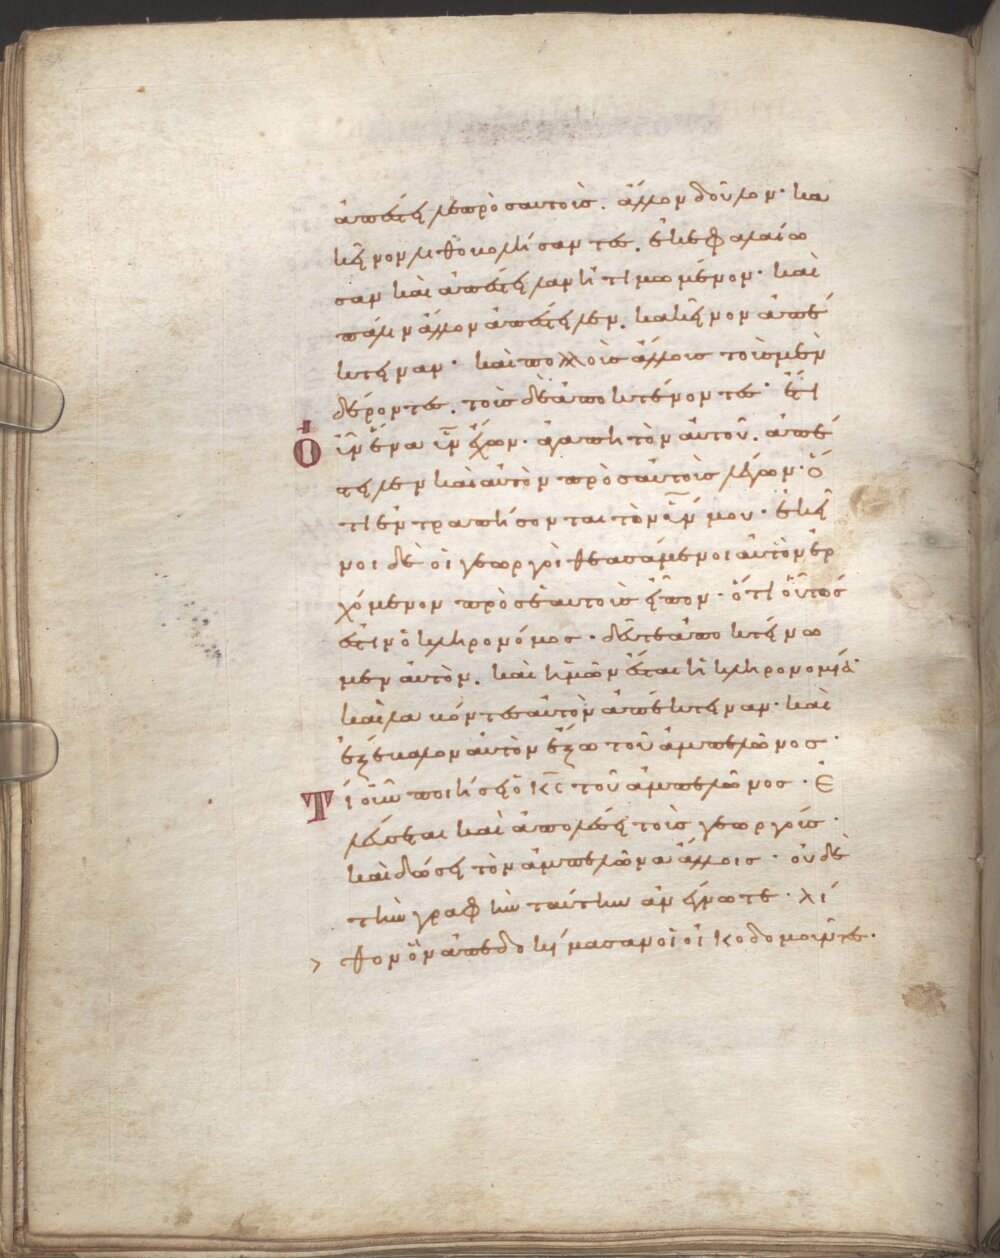 ἀπέστειλε πρὸς αυτοὶς. ἄλλον δοῦλον· κα
κεῖνον λιθοκολήσαντες. ἐκεφαλαίω
σαν καὶ ἀπέστειλαν ἠτιμωμένον· καὶ
πάλιν ἄλλον ἀπέστειλεν. κακεῖνον ἀπέ
κτειναν· καὶ πολλοὶς ἄλλοις τοὶς μὲν
δέροντες. τοὶς δὲ ἀποκτένοντες· ἔτι
Ὁ ὖν ἕνα υν̅ ἔχων· ἀγαπητὸν αὐτοῦ. ἀπέσ
τειλεν καὶ αὐτὸν πρὸς αὐτοὶς λέγων· ὅ
τι ἐντραπήσονται τὸν υν̅ μου· ἐκεῖ
νοι δὲ οἱ γεωργοὶ θεασάμενοι αὐτὸν ἐρ
χόμενον πρὸς ἑαυτοὶς εἶπον· ὅτι οὗτός
ἐστιν ὁ κληρονόμος· δεῦτε ἀποκτένω
μεν αὐτὸν. καὶ ἡμῶν ἔσται ἡ κληρονομία·
καὶ λαβόντες αὐτὸν ἀπέκτειναν· καὶ
ἐξέβαλον αὐτὸν ἔξω τοῦ ἀμπελῶνος·
Τί οὖν ποιήσει ὁ κς̅ τοῦ ἀμπελῶνος· Ἐ
λέυσεται καὶ ἀπολέσει τοὶς γεωργοίς·
καὶ δώσει τὸν ἀμπελῶνα ἄλλοις· οὐδὲ
τὴν γραφὴν ταύτην ἀνέγνωτε· λί
> θον ὃν ἀπεδοκήμασαν οἱ οἰκοδομοῦντες·